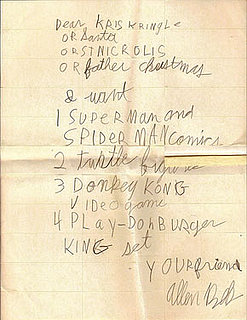 Dear KRIS KRINGLE
OR Santa
OR ST NICROLIS
OR father christmas
I want
1 SUPERMAN and
SPIDERMAN comics
2 turtle
3 DONKEY KONG
VIDEO game
4 PLAY-DOH BURGER
KING set
YOUR friend
Allen